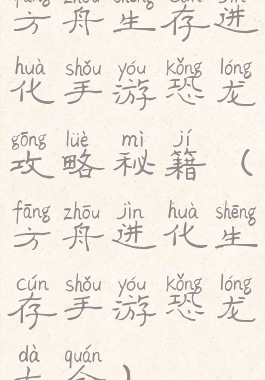 fāng zhōu shēng cún jìn
方舟生存进
huà shǒu yóu kǒng lóng
化手游恐龙
gōng lüè mì jí
攻略秘籍（
fāng zhōu jìn huà shēng
方舟进化生
cún shǒu yóu kǒng lóng
存手游恐龙
dà quán
大全）